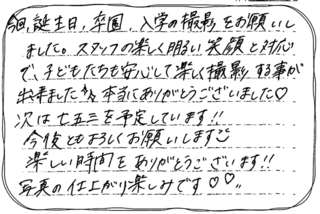 今回、誕生日、卒園、入学の撮影をお願いし
ました。スタッフの楽しく明るい笑顔と対応
で、子どもたちも安心して楽しく撮影する事が
出来ました。本当にありがとうございました♡
次は七五三を予定しています!!
今後ともよろしくお願いします
楽しい時間をありがとうございます!!
写真の仕上がり楽しみです♡♡"